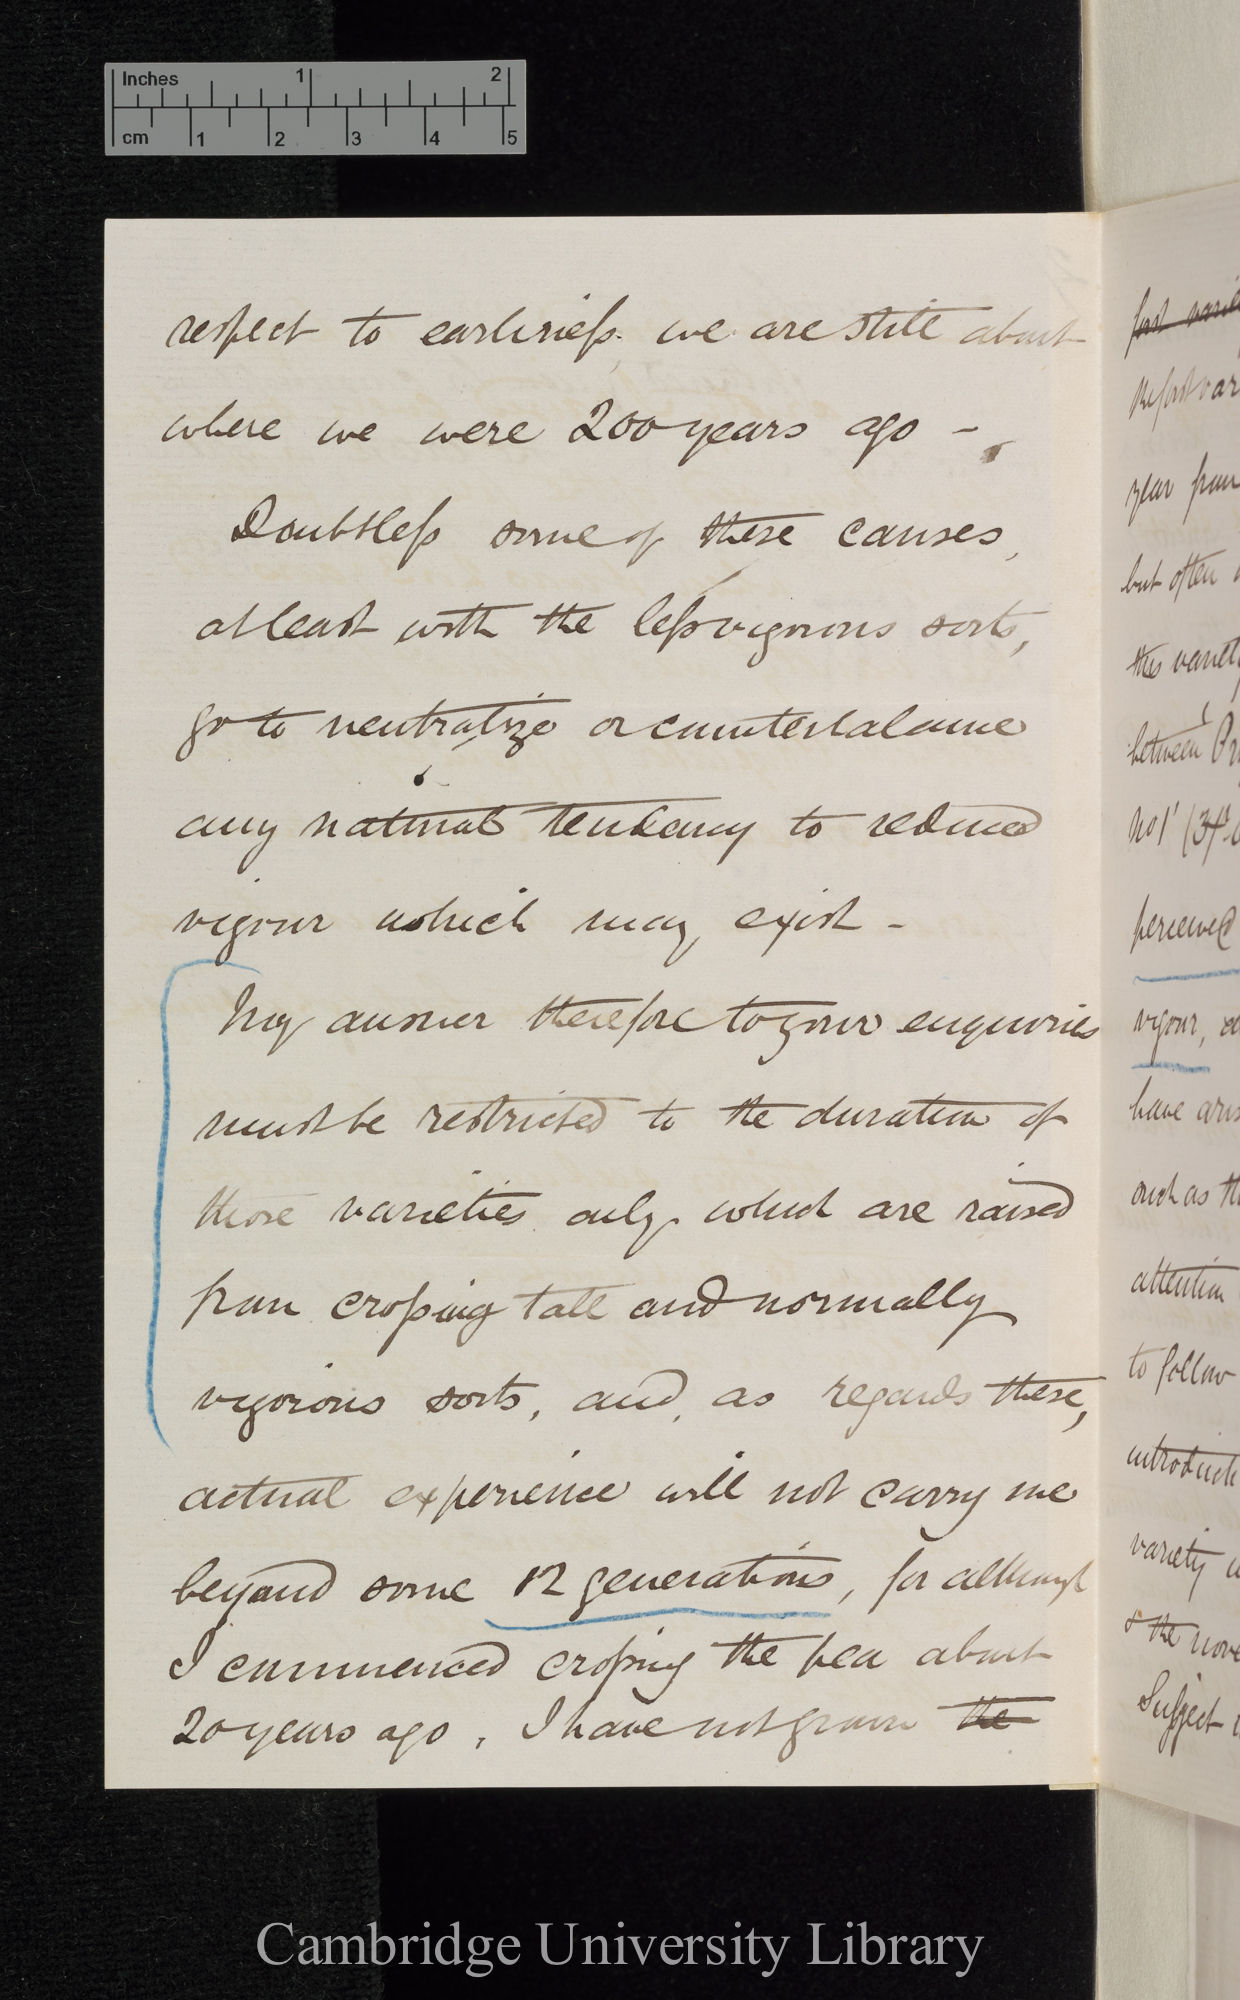 Inches 1 2
cm 1 2 3 4 5
respect to earliness. we are still about
where we were 200 years ago –
Doubtless some of these causes,
at least with the less vigorous sorts,
go to neutralize or counterbalance
any natural tendency to reduced
vigour which may exist –
My answer therefore to your enquiries
must be restricted to the duration of
those varieties only which are raised
from crossing tall and normally
vigorous sorts, and, as regards these,
actual experience will not carry me
beyond some 12 generations, for although
I commenced crossing the pea about
20 years ago, I have not grown the
the first var
year from
but often
this variet
between
No 1
perceived
vigour,
have aris
such as th
attention
to follow
introduct
variety
& the nove
Subject
Cambridge University Library